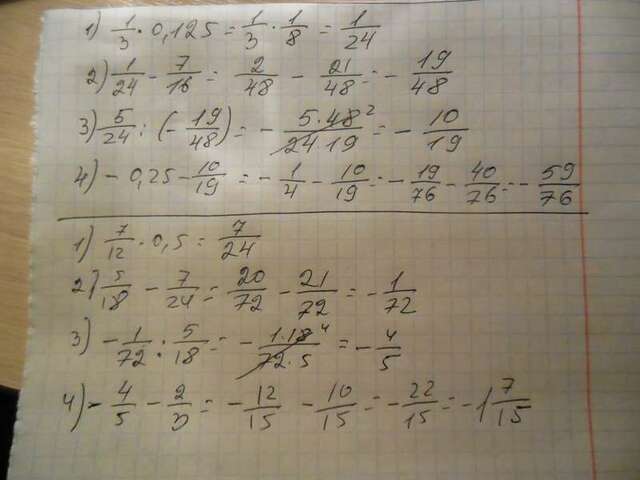 1) 1/3 · 0,125 = 1/3 · 1/8 = 1/24
2) 1/24 - 7/16 = 2/48 - 21/48 = - 19/48
3) 5/24 : (- 19/48) = - 5·48 2/24 19 = - 10/19
4) - 0,25 - 10/19 = - 1/4 - 10/19 = - 19/76 - 40/76 = - 59/76
1) 7/12 · 0,5 = 7/24
2) 5/18 - 7/24 = 20/72 - 21/72 = - 1/72
3) - 1/72 : 5/18 = - 1·18 4/72·5 = - 4/5
4) - 4/5 - 2/3 = - 12/15 - 10/15 = - 22/15 = - 1 7/15